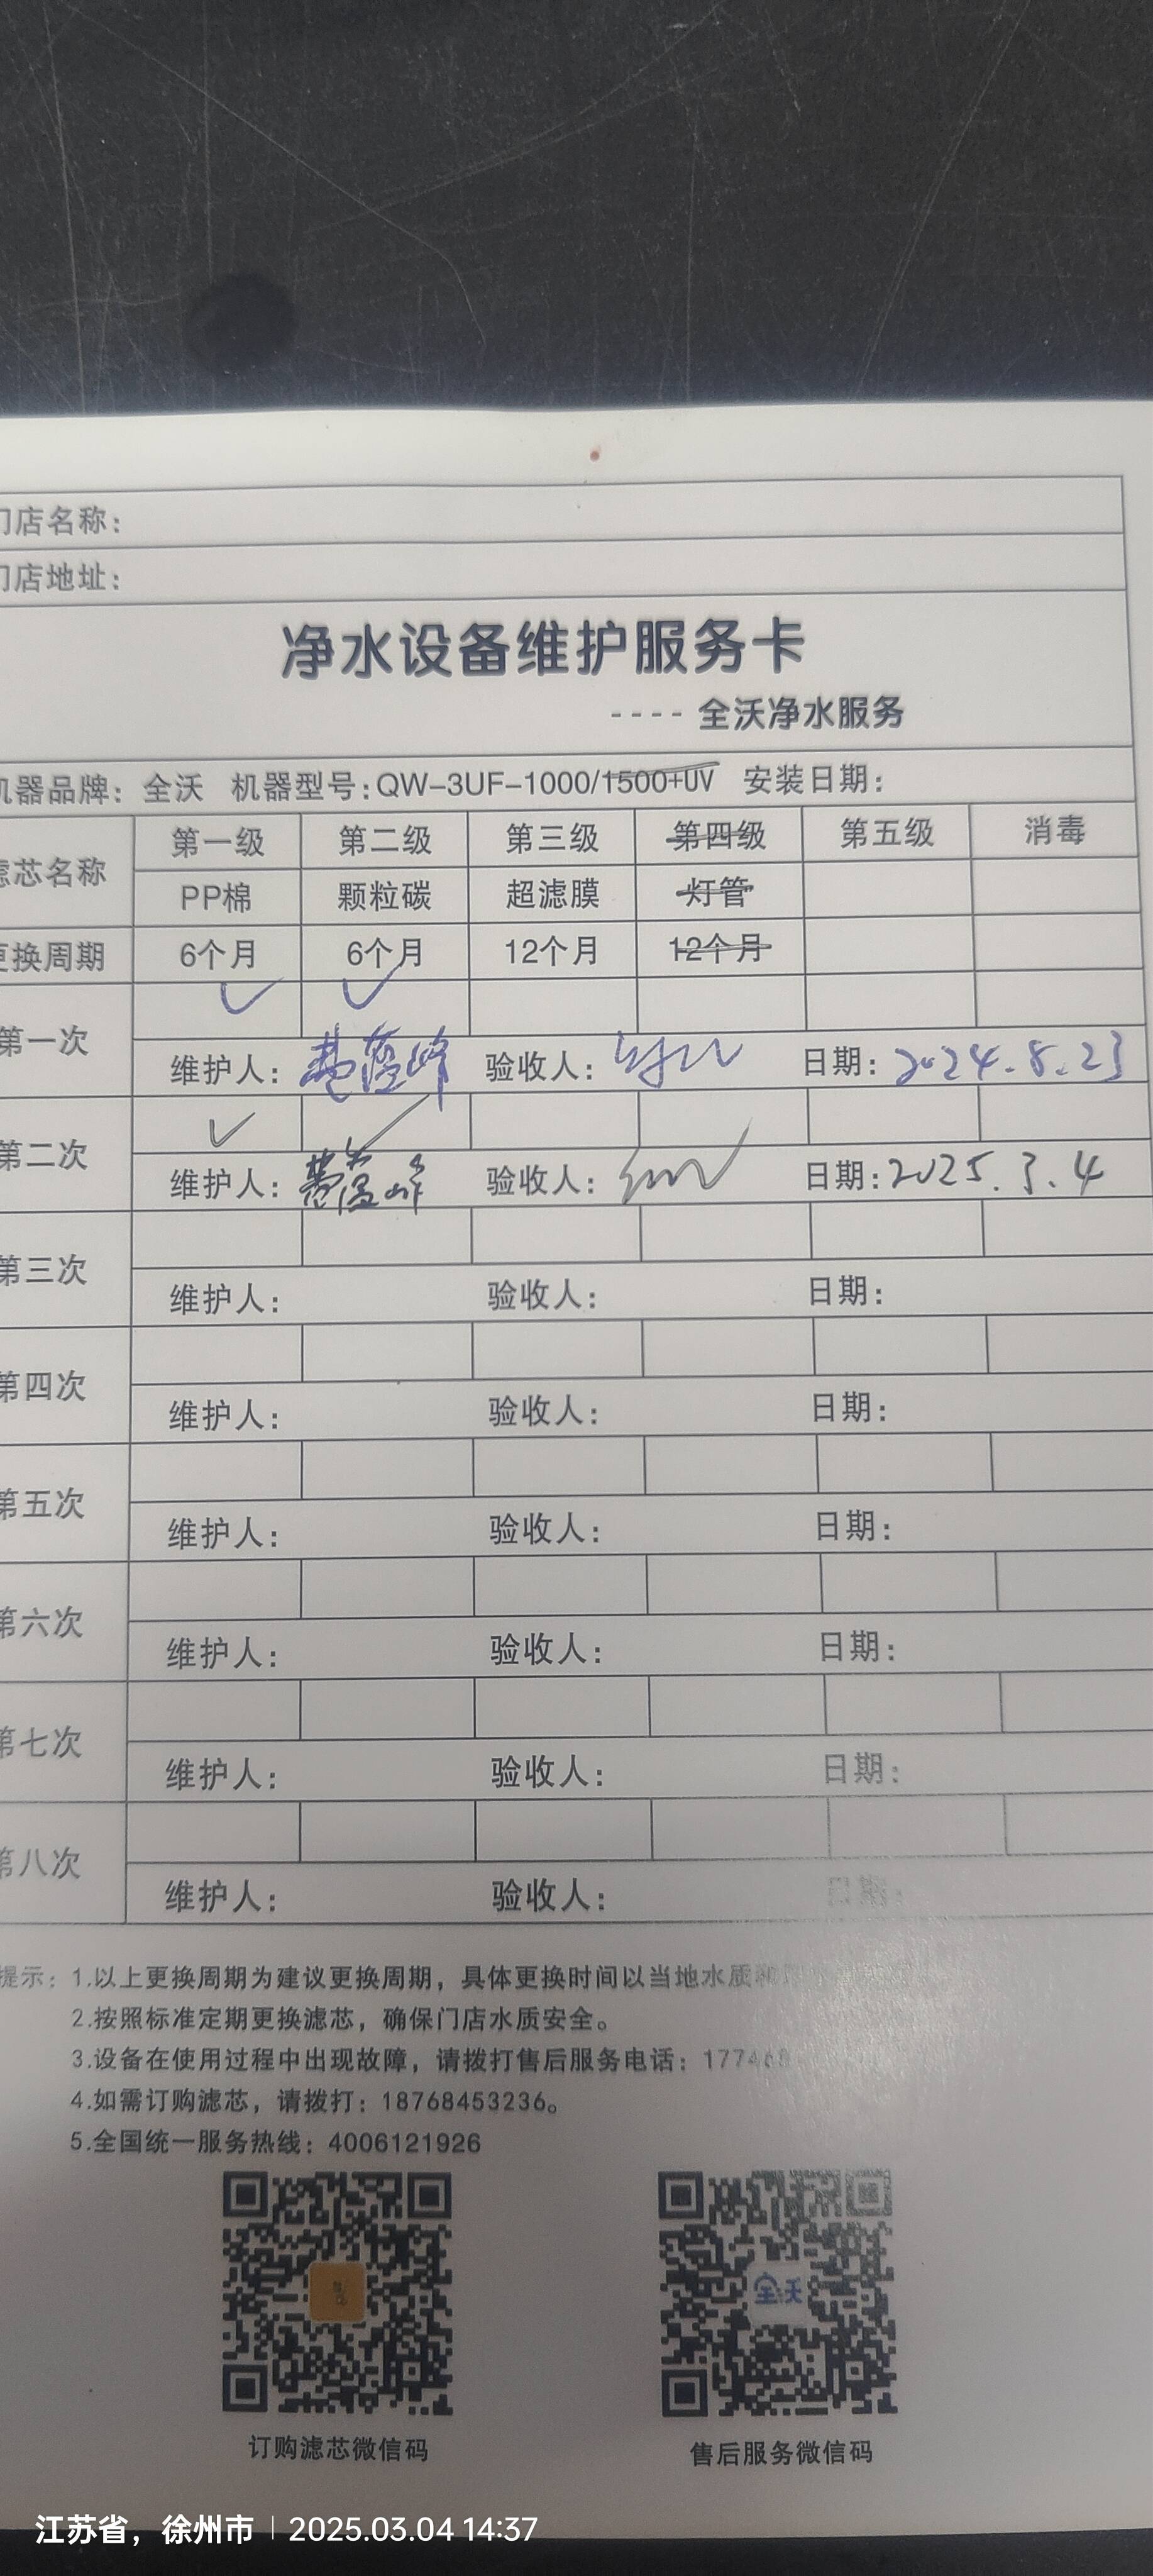 门店名称：
门店地址：
净水设备维护服务卡
---- 全沃净水服务
机器品牌：全沃 机器型号:QW-3UF-1000/1500+UV 安装日期：
滤芯名称 第一级 第二级 第三级 第四级 第五级 消毒
PP棉 颗粒碳 超滤膜 灯管
更换周期 6个月 6个月 12个月 12个月
第一次 ✓ ✓
维护人： 验收人： 日期：2024.8.23
第二次 ✓ ✓
维护人： 验收人： 日期：2025.3.4
第三次
维护人： 验收人： 日期：
第四次
维护人： 验收人： 日期：
第五次
维护人： 验收人： 日期：
第六次
维护人： 验收人： 日期：
第七次
维护人： 验收人： 日期：
第八次
维护人： 验收人： 日期：
提示：1.以上更换周期为建议更换周期，具体更换时间以当地水质
2.按照标准定期更换滤芯，确保门店水质安全。
3.设备在使用过程中出现故障，请拨打售后服务电话：
4.如需订购滤芯，请拨打：18768453236。
5.全国统一服务热线：4006121926
全沃
订购滤芯微信码 售后服务微信码
江苏省，徐州市 2025.03.04 14:37